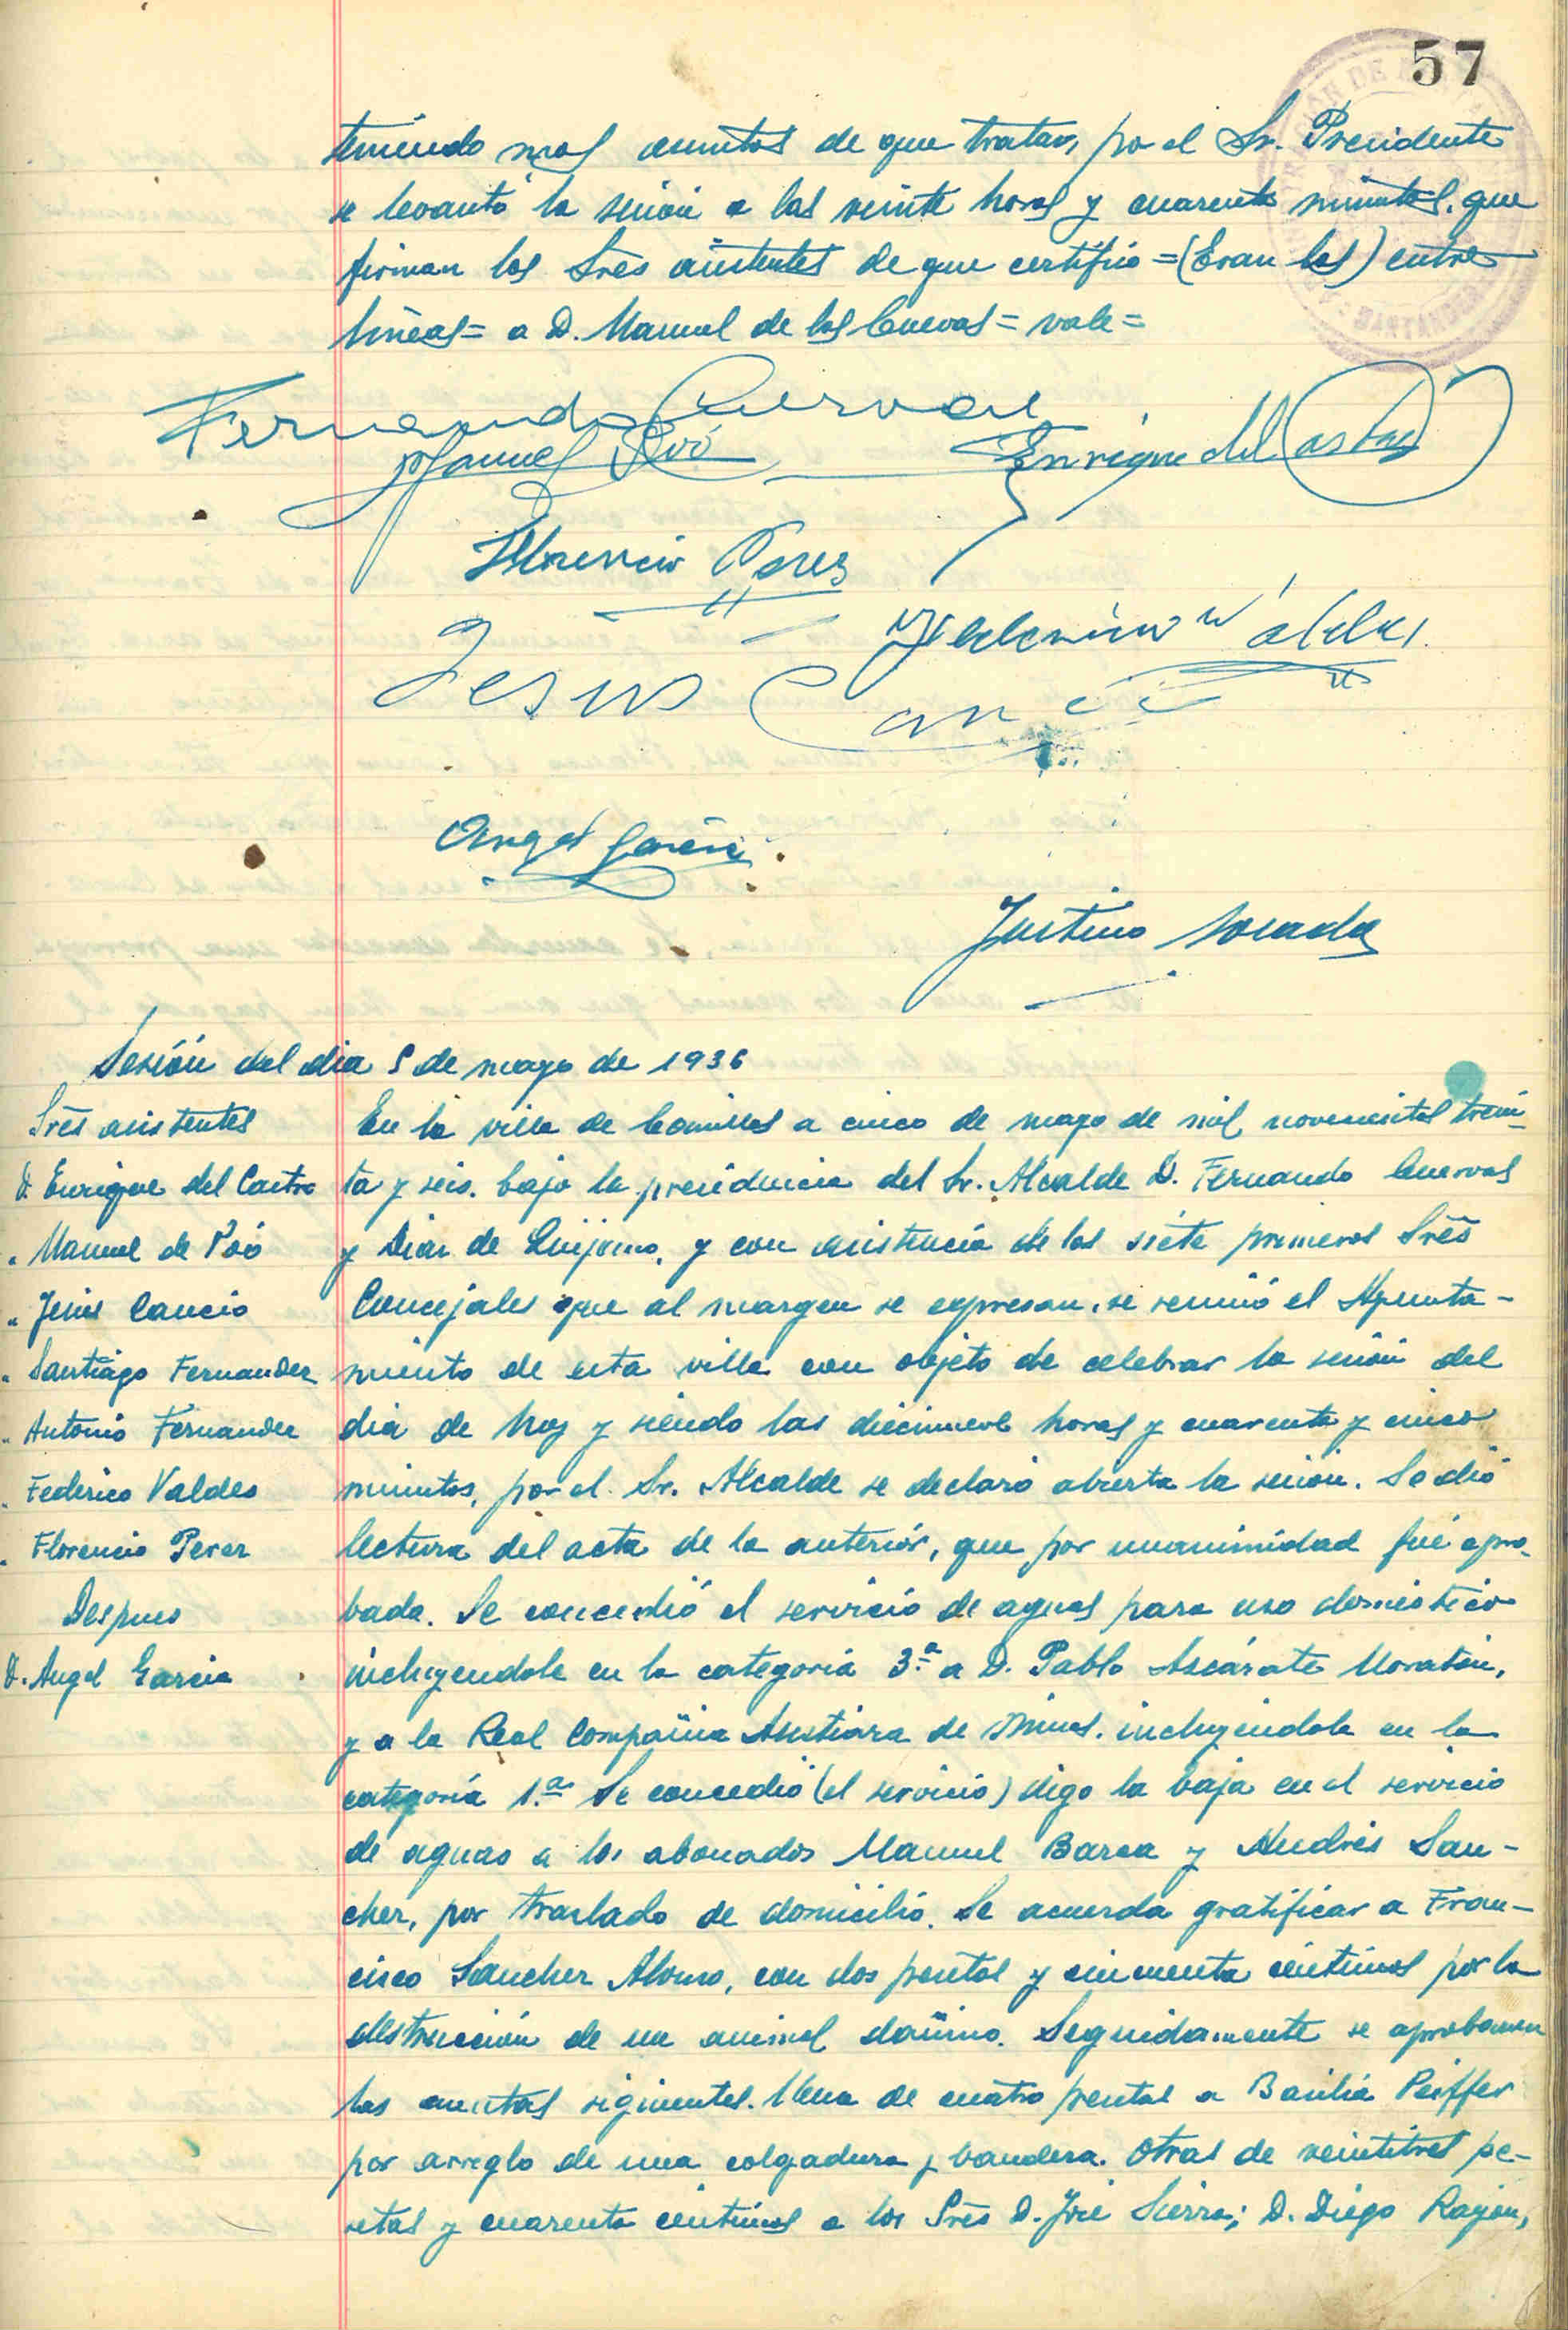 57
teniendo mas asuntos de que tratar, por el Sr. Presidente
se levantó la sesión a las veinte horas y cuarenta minutos, que
firman los Sres asistentes de que certifico =(Eran las) entre
lineas= a D. Manuel de las Cuevas = vale =
Fernando Cuervas
Manuel Poó
Enrique del Castro
Florencio Perez
Federico Valdes
Jesus Cancio
Angel García
Justino
Sesión del dia 5 de mayo de 1936
Sres asistentes
D. Enrique del Castro
" Manuel de Poó
" Jesus Cancio
" Santiago Fernandez
" Antonio Fernandez
" Federico Valdes
" Florencio Perez
Despues
D. Angel Garcia
En la villa de Comillas a cinco de mayo de mil novecientos trein-
ta y seis, bajo la presidencia del Sr. Alcalde D. Fernando Cuervas
y Diaz de Quijano, y con asistencia de los siete primeros Sres
Concejales que al margen se expresan, se reunió el Ayunta-
miento de esta villa con objeto de celebrar la sesión del
dia de hoy y siendo las diecinueve horas y cuarenta y cinco
minutos, por el Sr. Alcalde se declaró abierta la sesión. Se dió
lectura del acta de la anterior, que por unanimidad fué apro-
bada. Se concedió el servicio de aguas para uso doméstico
incluyendole en la categoria 3.ª a D. Pablo Ascárate Moratón,
y a la Real Compañia Asturiana de Minas, incluyendola en la
categoría 1.ª Se concedió (el servicio) digo la baja en el servicio
de aguas a los abonados Manuel Barea y Andrés San-
chez, por traslado de domicilio. Se acuerda gratificar a Fran-
cisco Sanchez Alonso, con dos pesetas y cincuenta céntimos por la
destrucción de un animal dañino. Seguidamente se aprobaron
las cuentas siguientes. Una de cuatro pesetas a Basilia Peiffer
por arreglo de una colgadura y bandera. Otras de veintitres pe-
setas y cuarenta centimos a los Sres D. José Sierra; D. Diego Rayón,